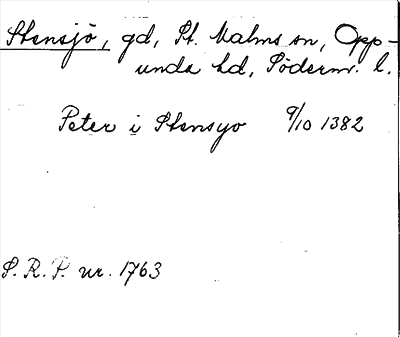 Stensjö, gd, St. Malms sn, Opp-
unda hd, Söderm. l.
Peter i Stensyo 9/10 1382
S.R.P. nr. 1763